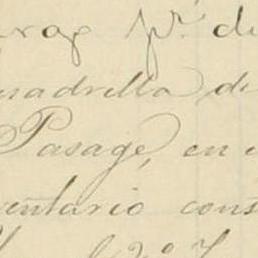 pr. de
uadrilla de
Pasage, en
entario cons